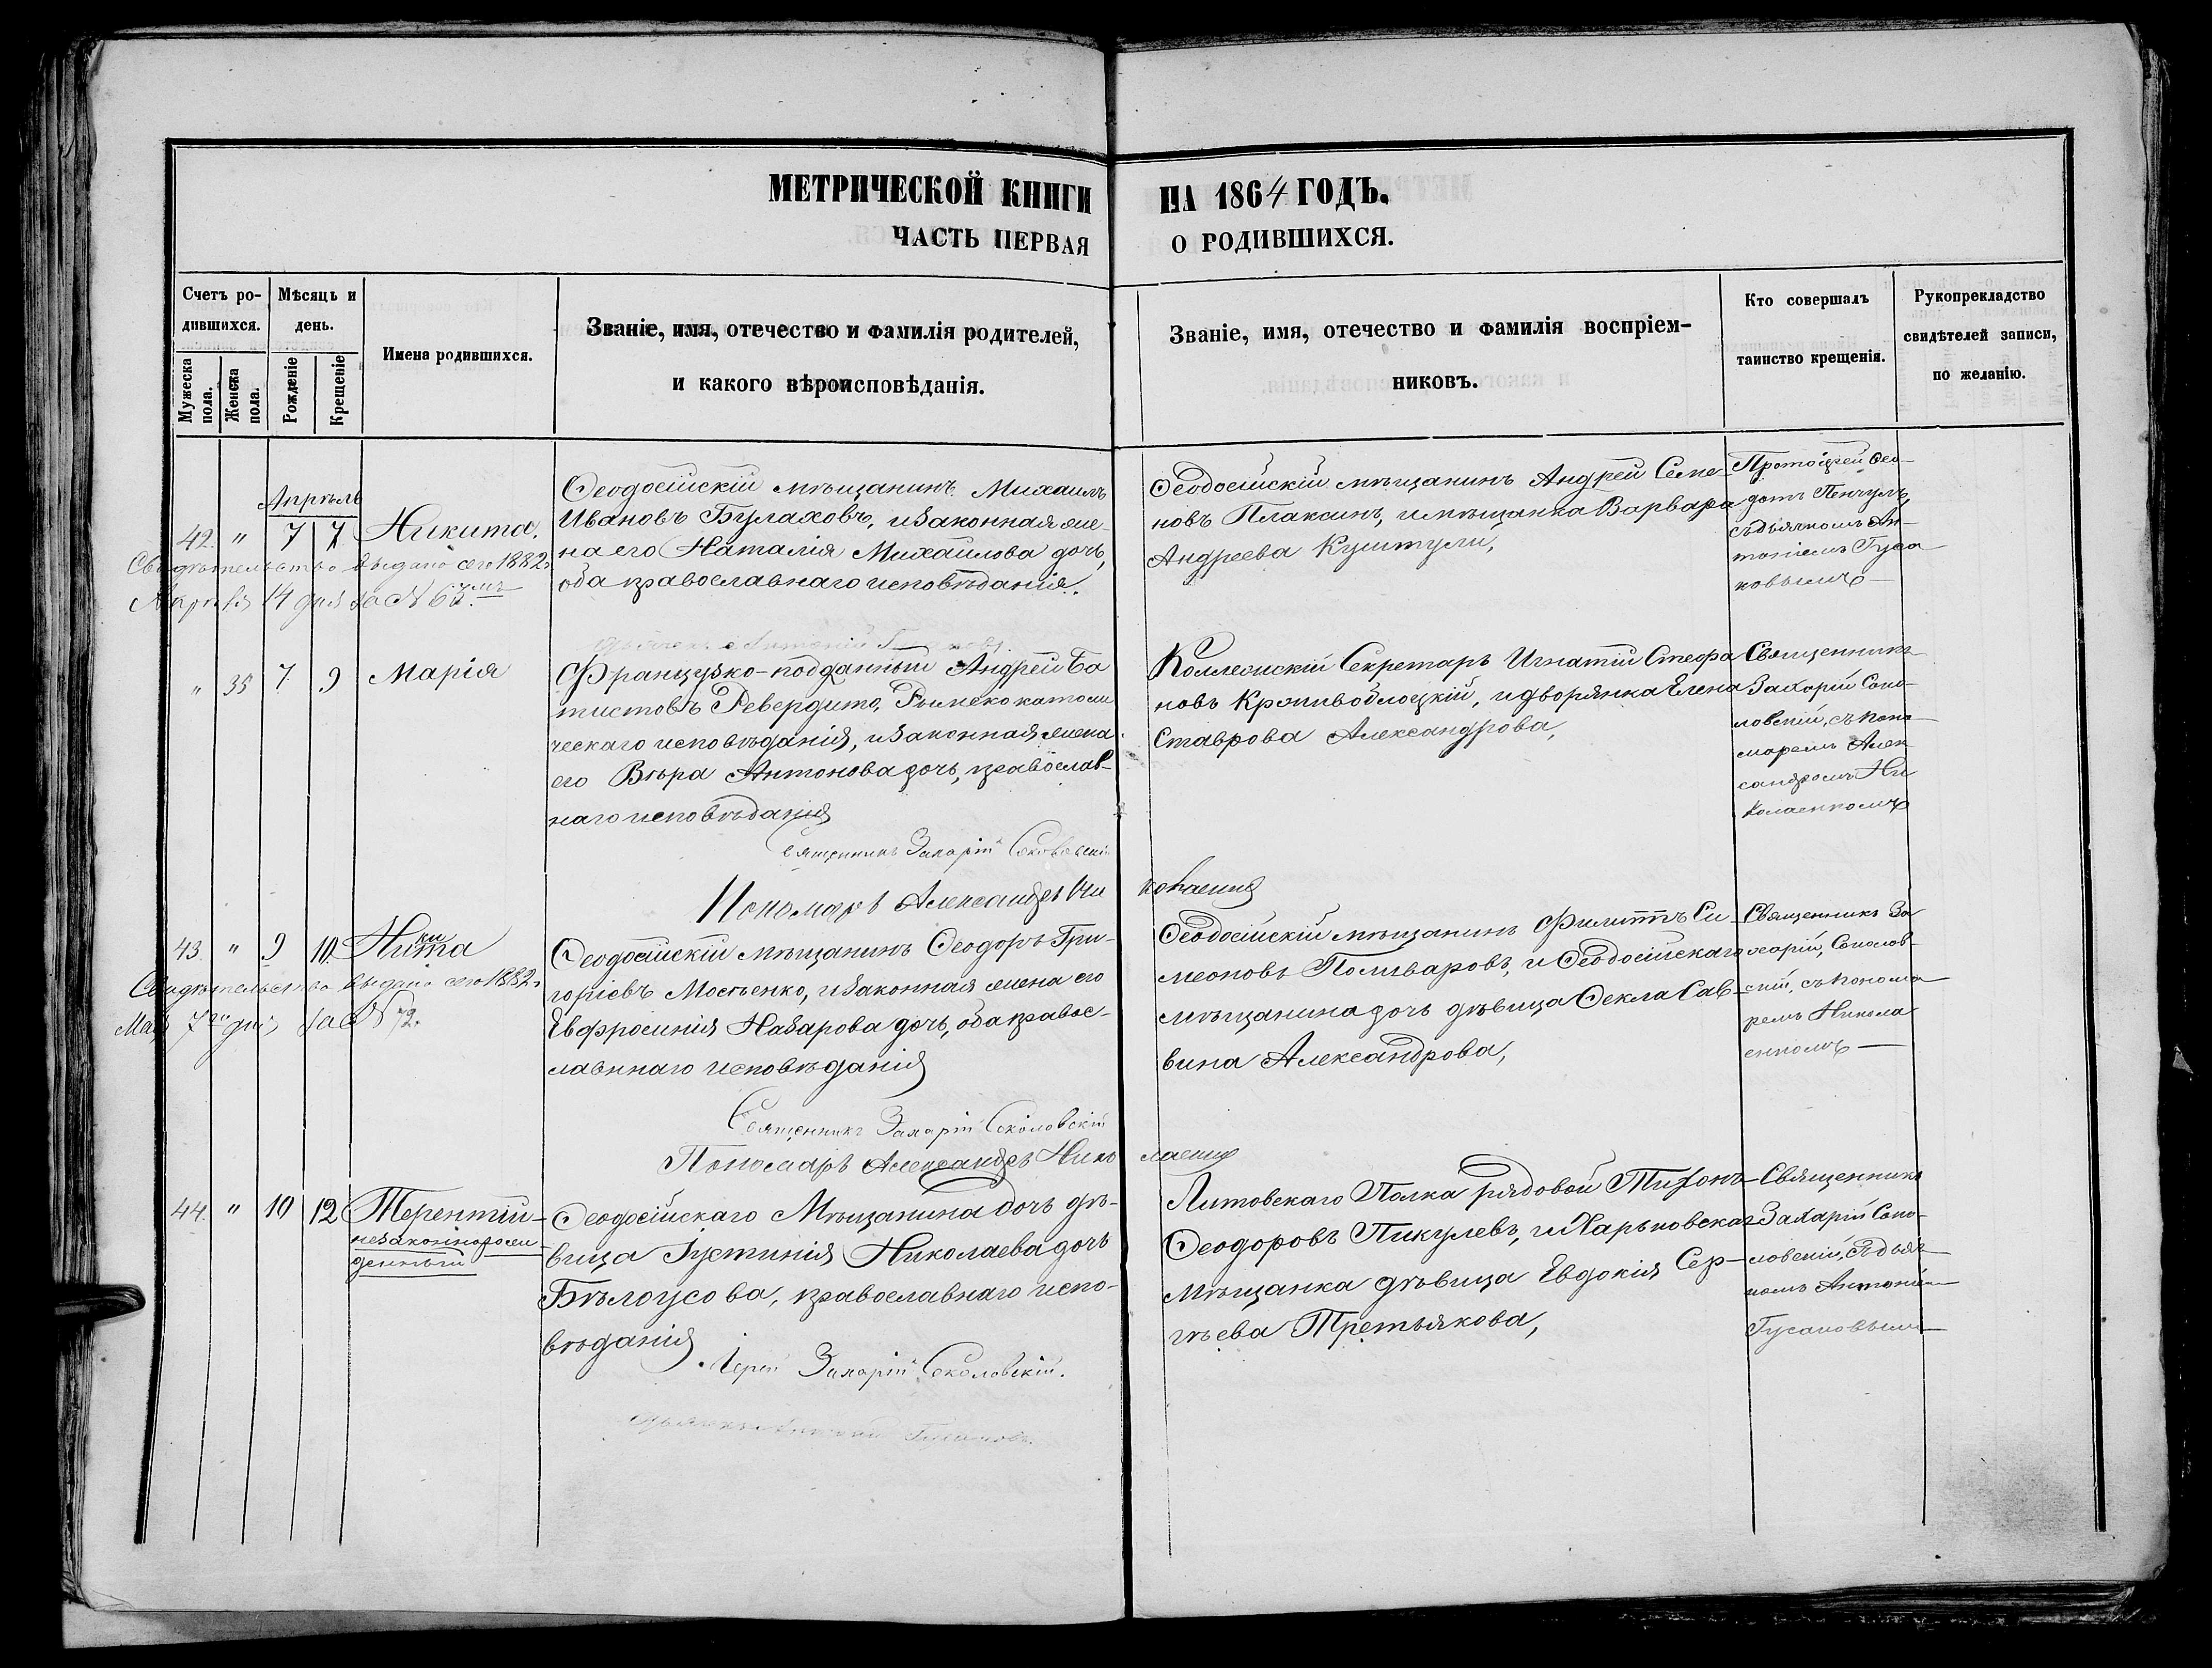 МЕТРИЧЕСКОЙ КНИГИ НА 1864 ГОДЪ.
ЧАСТЬ ПЕРВАЯ О РОДИВШИХСЯ.
Счетъ родившихся.
Мужеска пола.
Женска пола.
Мѣсяцъ и день.
Рожденіе
Крещеніе
Имена родившихся.
Званіе, имя, отечество и фамилія родителей,
и какого вѣроисповѣданія.
Званіе, имя, отечество и фамилія воспріем-
никовъ.
Кто совершалъ
таинство крещенія.
Рукоприкладство
свидѣтелей записи,
по желанію.
Апрѣль
42. " 7 7 Никита.
Свидѣтельство выдано сего 1882 г.
Апрѣля 14 дня за №
Ѳеодосійскій мѣщанинъ Михаилъ
Ивановъ Булаховъ, и законная же-
на его Наталія Михайлова дочь,
оба православнаго исповѣданія.
Ѳеодосійскій мѣщанинъ Андрей Семе-
новъ Плаксинъ, и мѣщанка Варвара
Андреева Куштули,
Протоіерей Ѳео-
дотъ
съ дьячкомъ Ан-
тоніемъ Гуса-
ковымъ
" 35 7 9 Марія
Французко-подданный Андрей Ба
тистовъ Ревердито, Римско католи
ческаго исповѣданія, и законная жена
его Вѣра Антонова дочь, православ-
наго исповѣданія
Коллежскій Секретарь Игнатій Стефа
новъ Крживоблоцкій, и дворянка Елена
Ставрова Александрова,
Священникъ
Захарій Соко-
ловскій, съ поно-
маремъ Алек
сандромъ Ни
колаенкомъ
Священникъ Захарій Соколовскій
Пономарь Александръ Ни колаенко
43. " 9 10 Никита
Свидѣтельство выдано сего 1882 г.
Мая 7го дня за № 72.
Ѳеодосійскій мѣщанинъ Ѳеодоръ Гри-
горіевъ Мосьенко, и законная жена его
Евфросинія Назарова дочь, оба правос-
лавннаго исповѣданія
Ѳеодосійскій мѣщанинъ Филиппъ Си-
меоновъ Поливаровъ, и Ѳеодосійскаго
мѣщанина дочь дѣвица Ѳекла Сав-
вина Александрова,
Священникъ За
харій, Соколов-
скій, съ понома
ремъ Никола
енкомъ
Священникъ Захарій Соколовскій
Пономарь Александръ Нико лаенко
44. " 10 12 Терентій-
незаконнорож
денный
Ѳеодосійскаго Мѣщанина дочь дѣ-
вица Іустинія Николаева дочь
Бѣлоусова, православнаго испо-
вѣданія
Литовскаго Полка рядовой Тихонъ
Ѳеодоровъ Пикулевъ, и Харьковская
мѣщанка дѣвица Евдокія Сер-
гѣева Третьякова,
Священникъ
Захарій Соко-
ловскій, съ дьяч
комъ Антоніемъ
Гусаковымъ
Іерей Захарій Соколовскій.